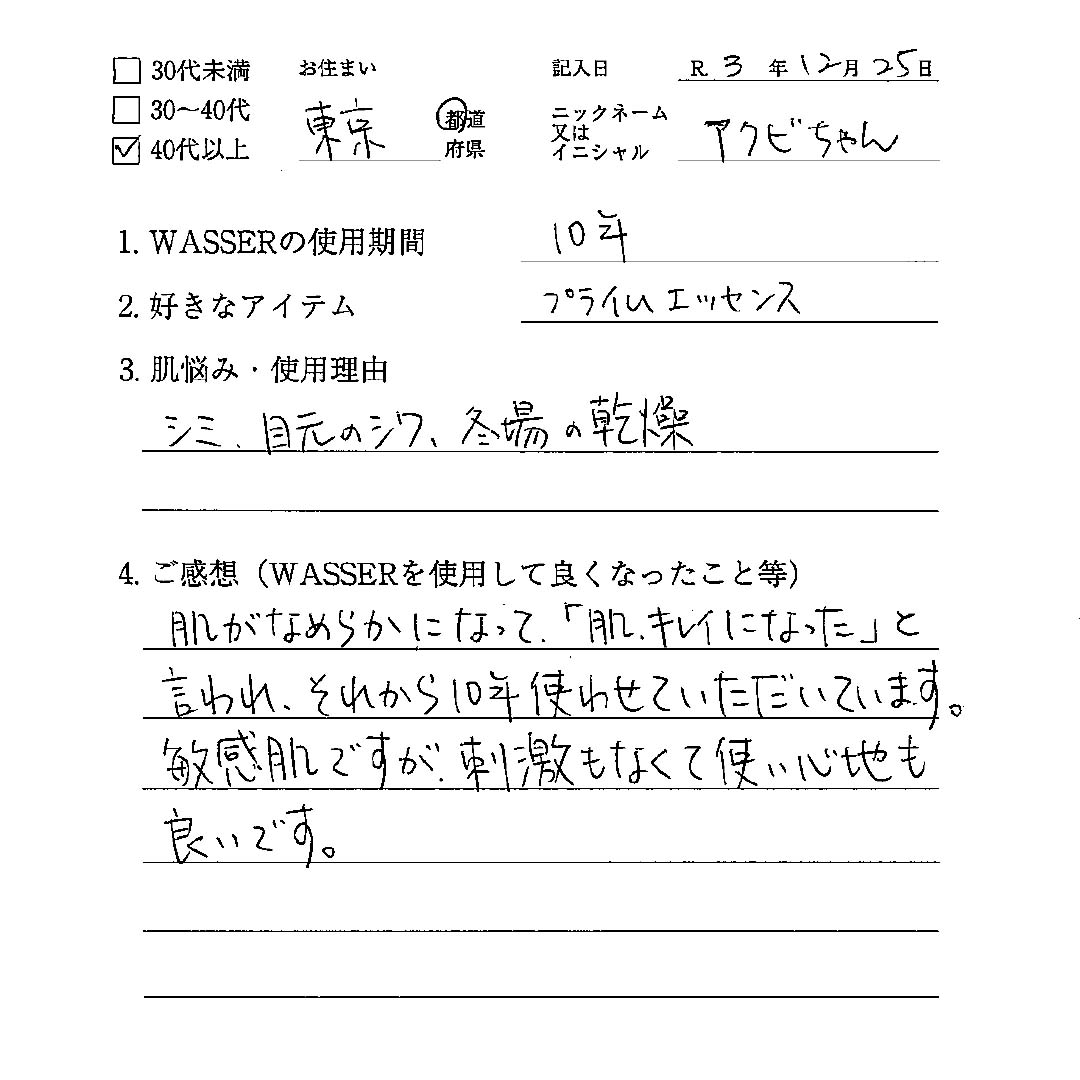 ☐ 30代未満 お住まい 記入日 R 3 年 12月 25日
☐ 30〜40代 東京 都道 ニックネーム
☑ 40代以上 府県 又は アクビちゃん
イニシャル
1. WASSERの使用期間 10年
2. 好きなアイテム プライムエッセンス
3. 肌悩み・使用理由
シミ、目元のシワ、冬場の乾燥
4. ご感想（WASSERを使用して良くなったこと等）
肌がなめらかになって、「肌、キレイになった」と
言われ、それから10年使わせていただいています。
敏感肌ですが、刺激もなくて使い心地も
良いです。